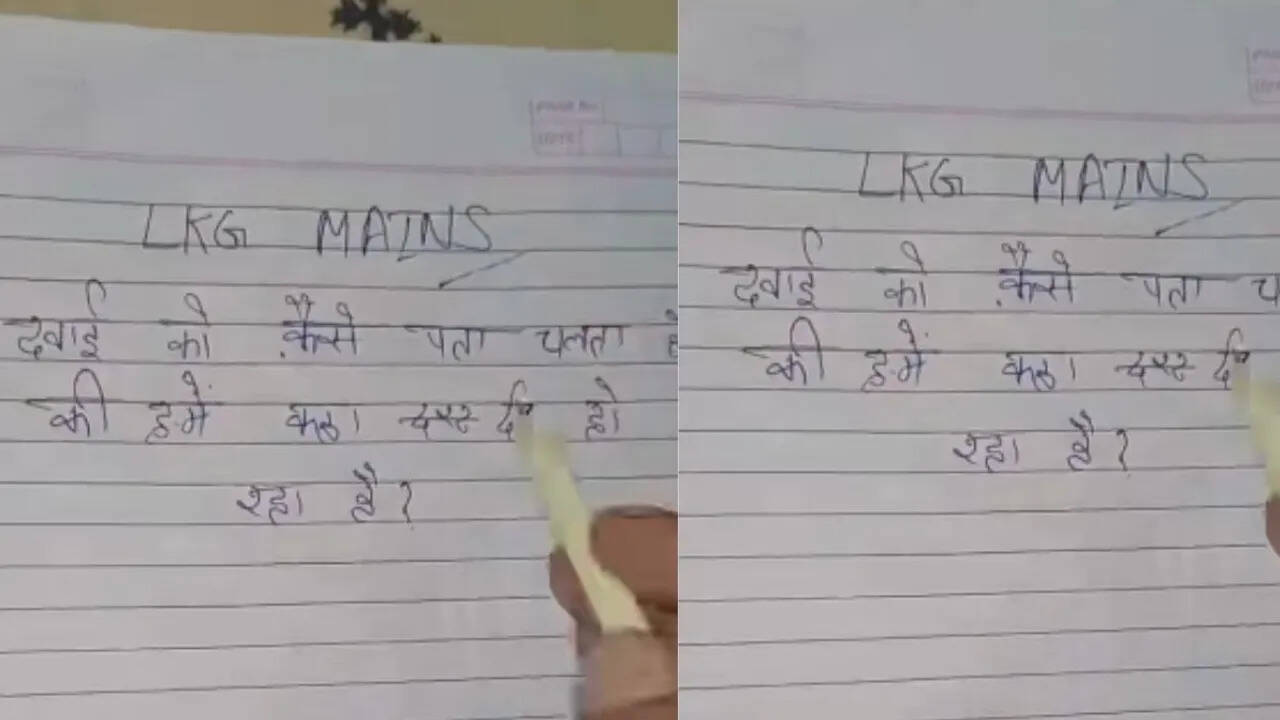 LKG MAINS
दवाई को कैसे पता चलता है
की हमें कहा दर्द हो
रहा है?
LKG MAINS
दवाई को कैसे पता च
की हमें कहा
रहा है?